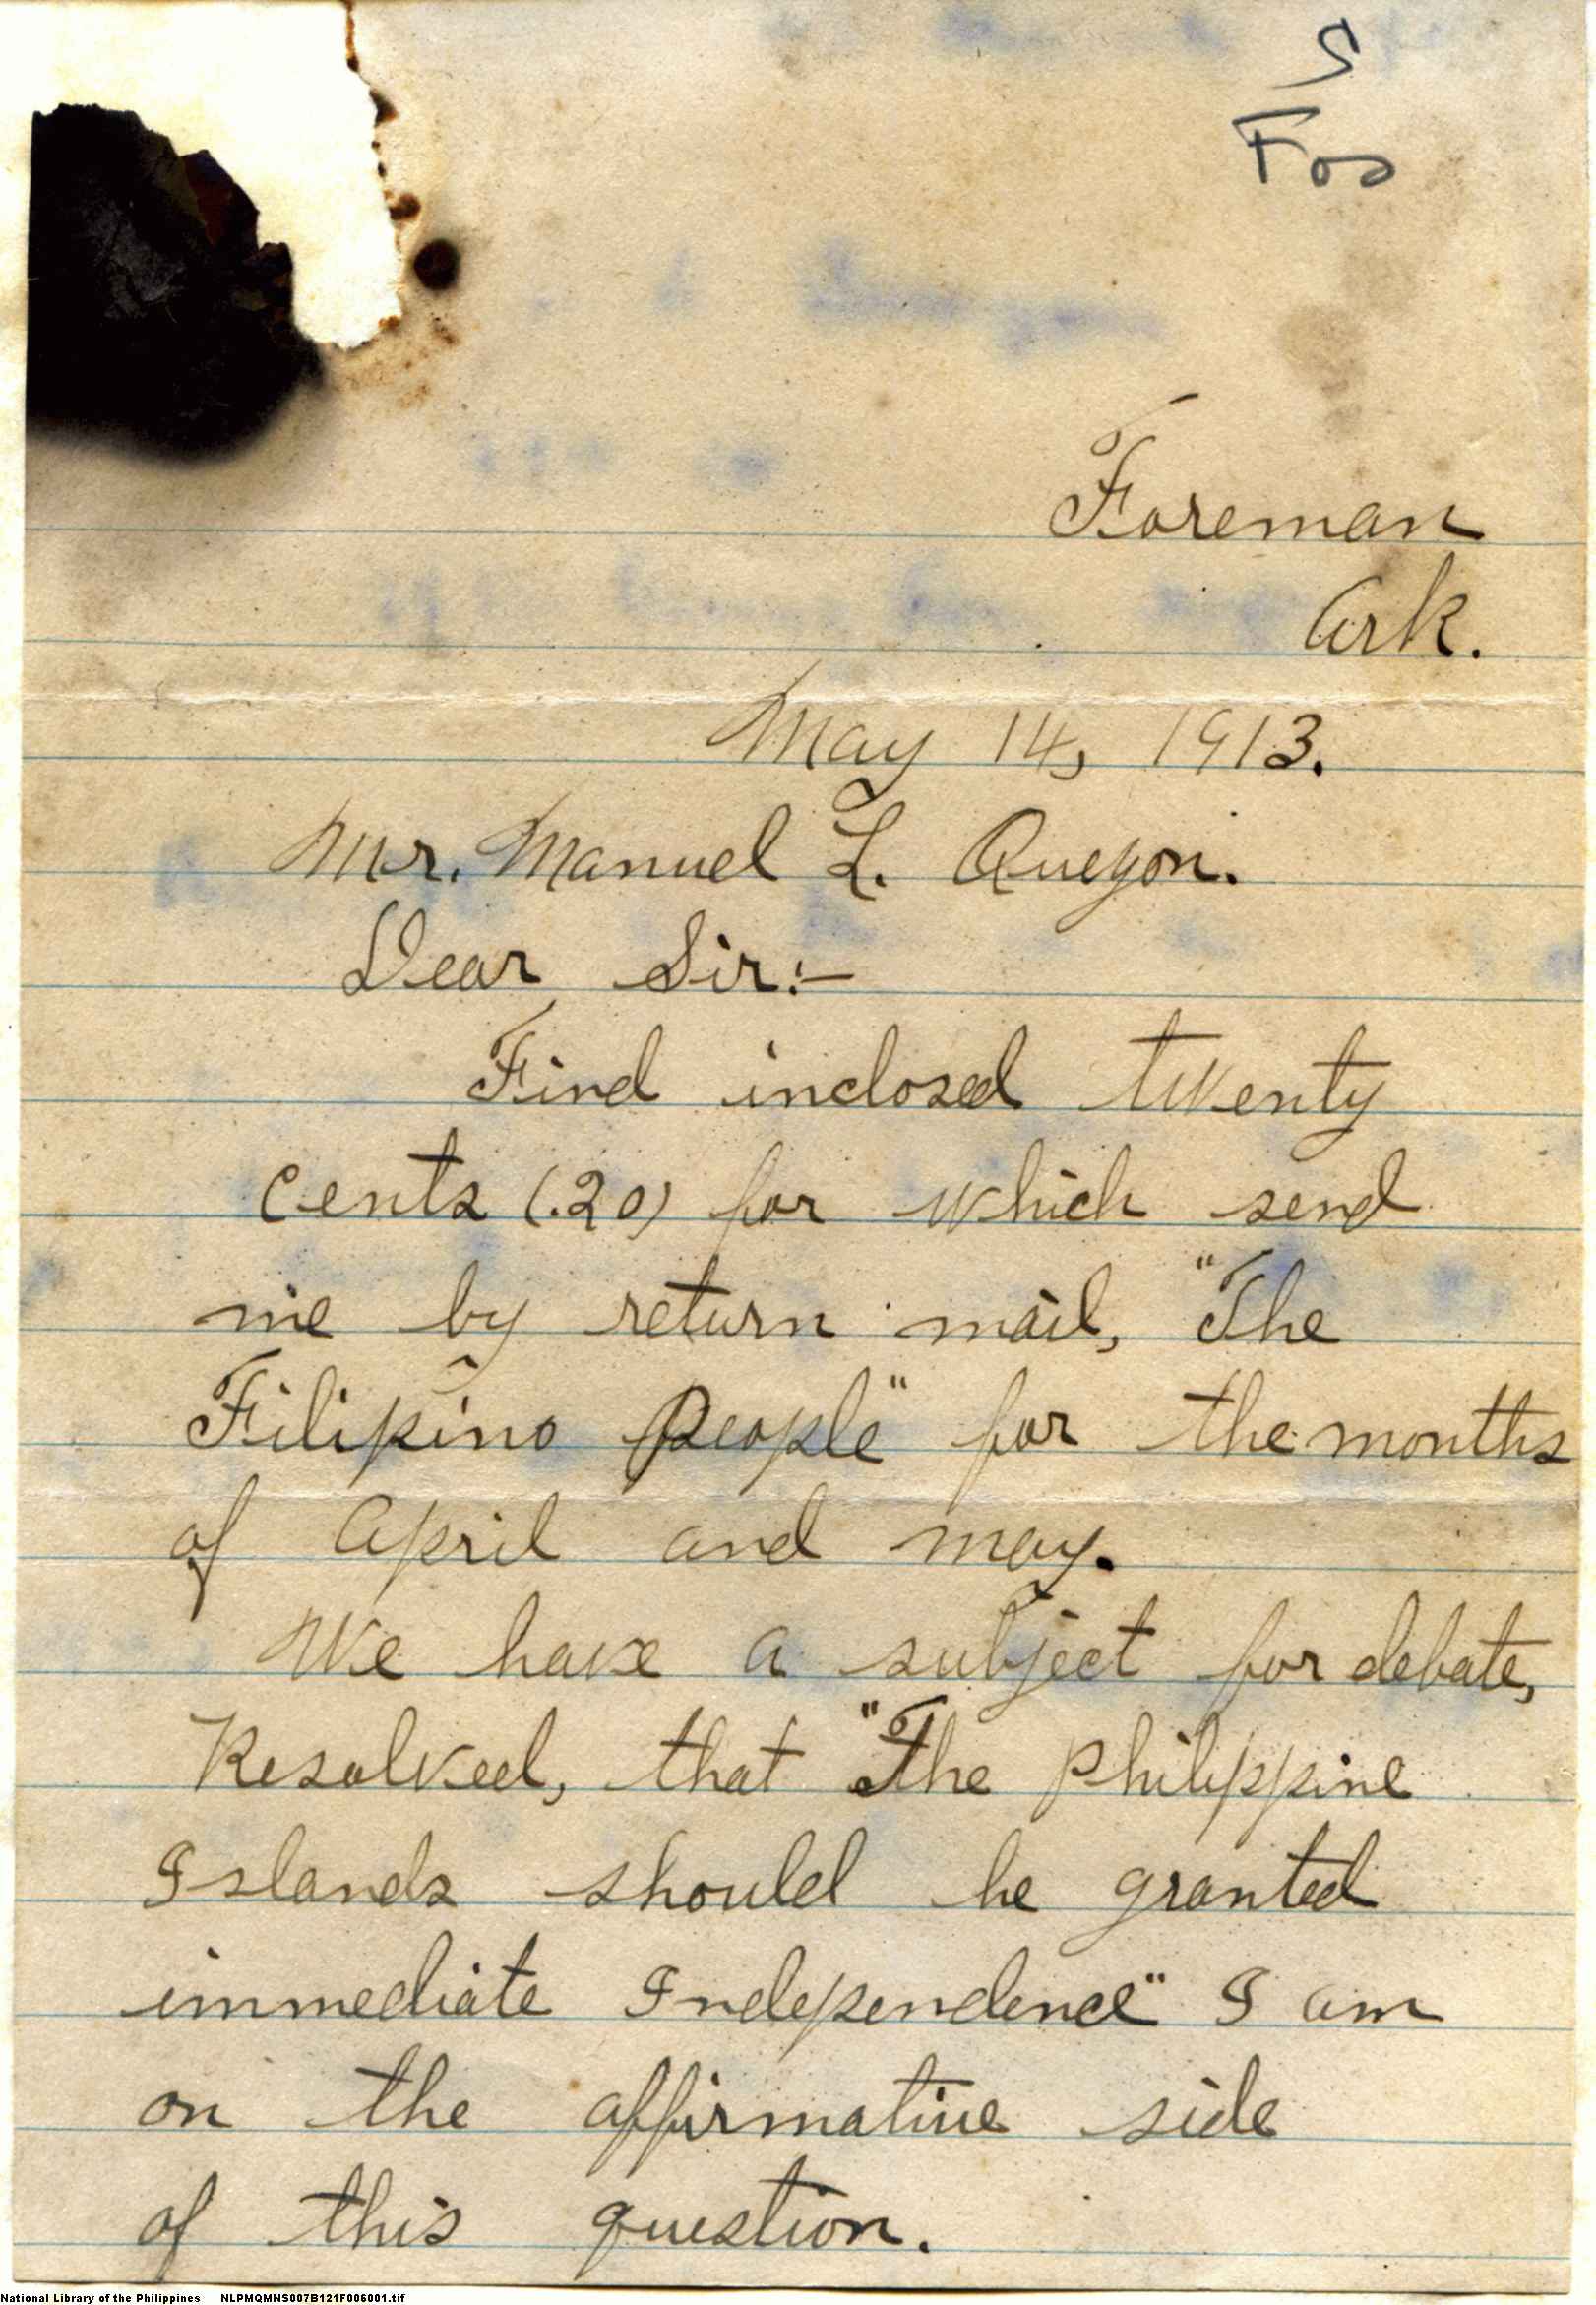 S
Foo
Foreman
Ark.
May 14, 1913.
Mr. Manuel L. Quezon.
Dear Sir:-
Find inclosed twenty
cents (.20) for which send
me by return mail, "The
Filipino People" for the months
of April and may.
We have a subject for debate,
Resolved, that "The Philippine
Islands should be granted
immediate Independence" I am
on the affirmative side
of this question.
National Library of the Philippines NLPMQMNS007B121F006001.tif